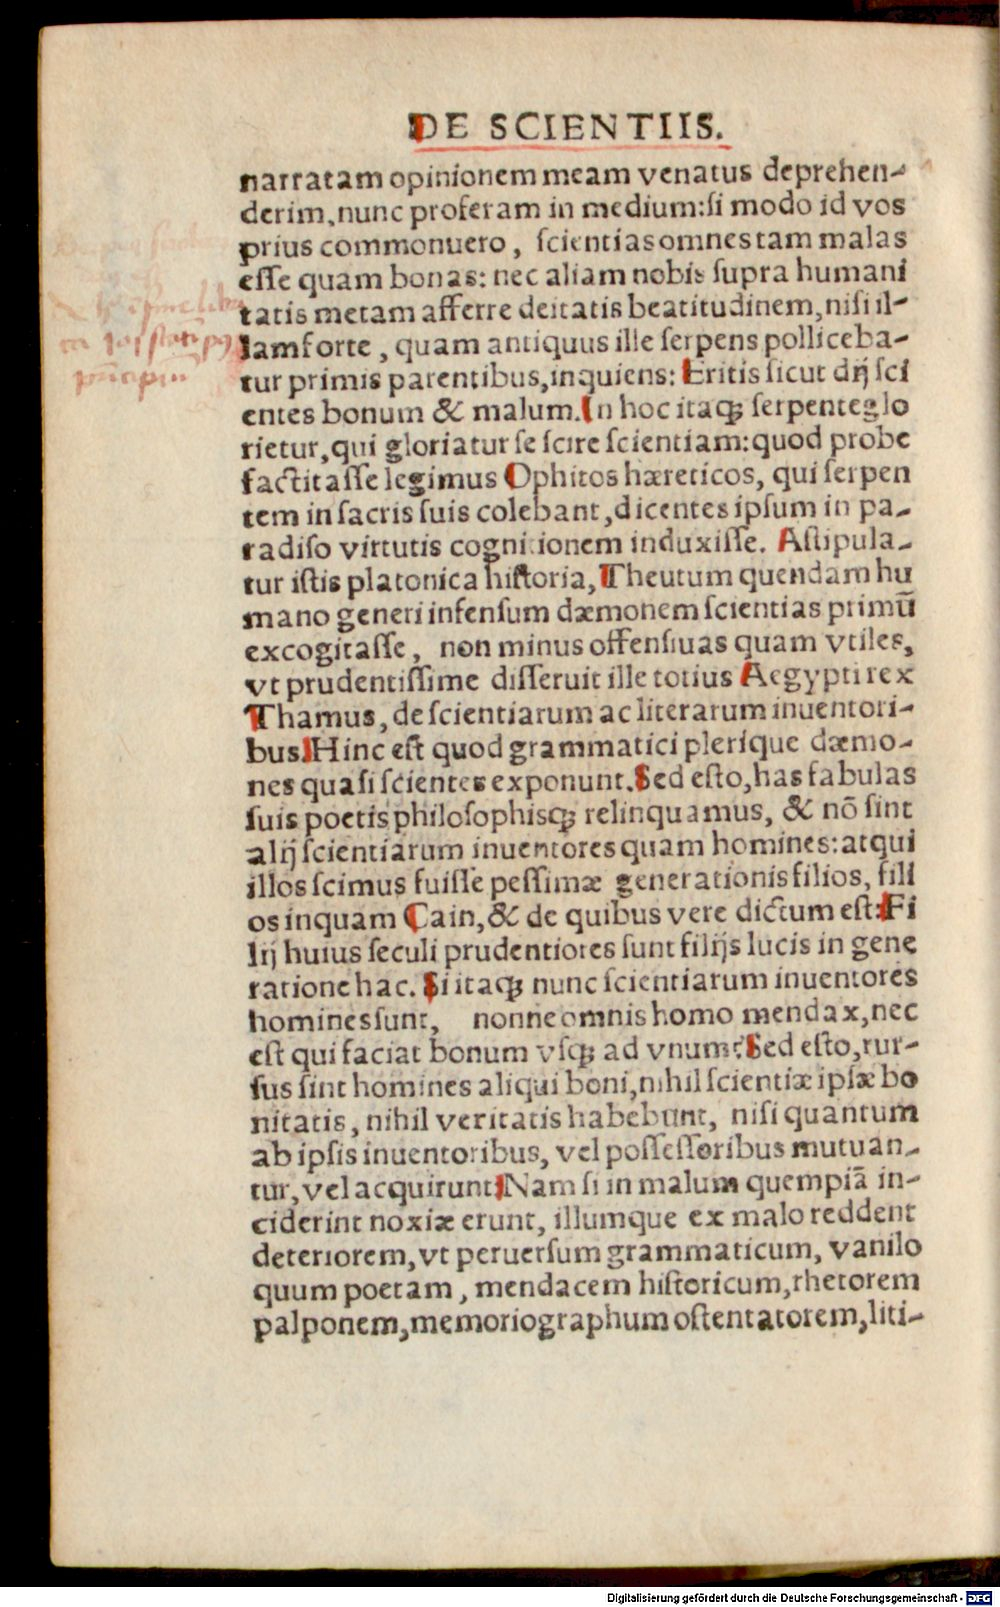 DE SCIENTIIS.
narratam opinionem meam venatus deprehen-
derim, nunc proferam in medium: si modo id vos
prius commonuero, scientias omnes tam malas
esse quam bonas: nec aliam nobis supra humani
tatis metam afferre deitatis beatitudinem, nisi il-
lam forte, quam antiquus ille serpens polliceba-
tur primis parentibus, inquiens: Eritis sicut dij sci
entes bonum & malum. In hoc itaq; serpente glo
rietur, qui gloriatur se scire scientiam: quod probe
factitasse legimus Ophitos hæreticos, qui serpen
tem in sacris suis colebant, dicentes ipsum in pa-
radiso virtutis cognitionem induxisse. Astipula-
tur istis platonica historia, Theutum quendam hu
mano generi infensum dæmonem scientias primū
excogitasse, non minus offensiuas quam vtiles,
vt prudentissime disseruit ille totius Aegypti rex
Thamus, de scientiarum ac literarum inuentori-
bus. Hinc est quod grammatici plerique dæmo-
nes quasi scientes exponunt. Sed esto, has fabulas
suis poetis philosophisq; relinquamus, & nō sint
alij scientiarum inuentores quam homines: atqui
illos scimus fuisse pessimæ generationis filios, fili
os inquam Cain, & de quibus vere dictum est: Fi
lij huius seculi prudentiores sunt filijs lucis in gene
ratione hac. Si itaq; nunc scientiarum inuentores
homines sunt, nonne omnis homo mendax, nec
est qui faciat bonum vsq; ad vnum? Sed esto, rur-
sus sint homines aliqui boni, nihil scientiæ ipsæ bo
nitatis, nihil veritatis habebunt, nisi quantum
ab ipsis inuentoribus, vel possessoribus mutuan-
tur, vel acquirunt. Nam si in malum quempiā in-
ciderint noxiæ erunt, illumque ex malo reddent
deteriorem, vt peruersum grammaticum, vanilo
quum poetam, mendacem historicum, rhetorem
palponem, memoriographum ostentatorem, liti-
Digitalisierung gefördert durch die Deutsche Forschungsgemeinschaft - DFG